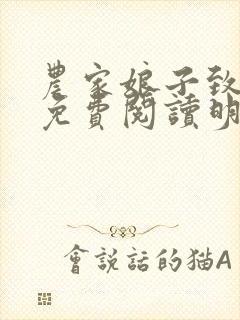 農家娘子致
免費閱讀明
會說話的貓A